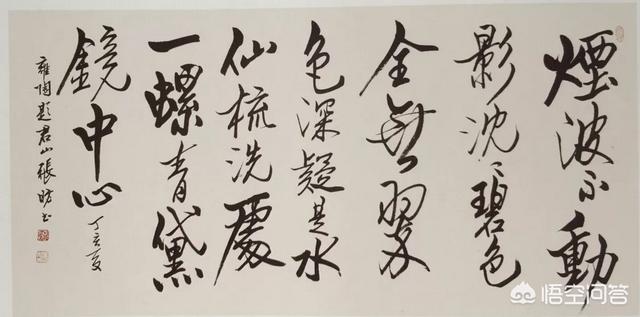 煙波不動
影沈々碧色
全無翠
色深疑是水
仙梳洗處
一螺青黛
鏡中心
丁亥夏
雍陶題君山張書
悟空问答